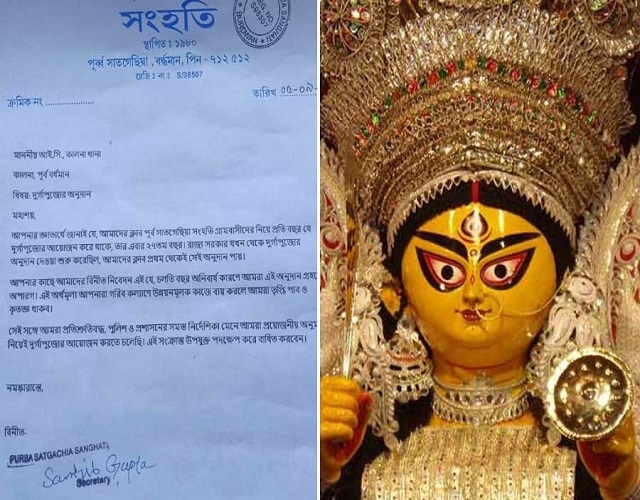 সংহতি
স্থাপিত : ১৯৮০
পূর্ব্ব সাতগেছিয়া, বর্ধমান, পিন - ৭১২ ৫১২
রেজিঃ নং : S/98507
ক্রমিক নং
তারিখ ০৫-০৯-
মাননীয় আই.সি., কালনা থানা
কালনা, পূর্ব বর্ধমান
বিষয়: দুর্গাপুজোর অনুদান
মহাশয়,
আপনার জ্ঞাতার্থে জানাই যে, আমাদের ক্লাব পূর্ব সাতগেছিয়া সংহতি গ্রামবাসীদের নিয়ে প্রতি বছর যে
দুর্গাপুজোর আয়োজন করে থাকে, তার এবার ২৭তম বছর। রাজ্য সরকার যখন থেকে দুর্গাপুজোর
অনুদান দেওয়া শুরু করেছিল, আমাদের ক্লাব প্রথম থেকেই সেই অনুদান পায়।
আপনার কাছে আমাদের বিনীত নিবেদন এই যে, চলতি বছর অনিবার্য কারণে আমরা এই অনুদান গ্রহণে
অপারগ। এই অর্থমূল্য আপনারা গরিব কল্যাণে উন্নয়নমূলক কাজে ব্যয় করলে আমরা তৃপ্তি পাব ও
কৃতজ্ঞ থাকব।
সেই সঙ্গে আমরা প্রতিশ্রুতিবদ্ধ, পুলিশ ও প্রশাসনের সমস্ত নির্দেশিকা মেনে আমরা প্রয়োজনীয় অনুম
নিয়েই দুর্গাপুজোর আয়োজন করতে চলেছি। এই সংক্রান্ত উপযুক্ত পদক্ষেপ করে বাধিত করবেন।
নমস্কারান্তে,
বিনীত-
PURBA SATGACHIA SANGHATI
Sanjib Gupta
Secretary